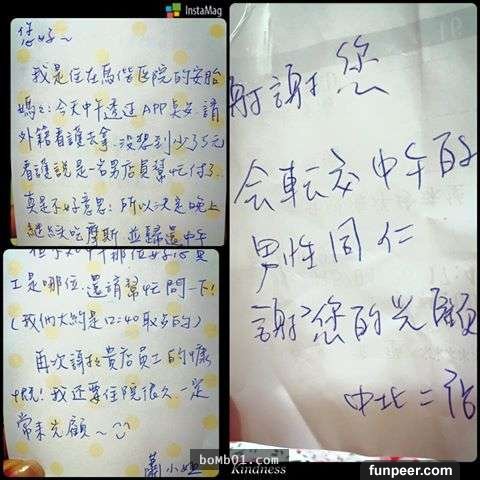 InstaMag
您好～
我是住在馬偕医院的安胎
媽ㄇ:今天中午透过APP點.請
外籍看護去拿.没想到少了5元
看護說是一名男店員幫忙付了.
真是不好意思!所以決定晚上
継续吃摩斯 並歸還中午
但不知中午那位好心員
工是哪位.還請幫忙問一下!
(我們大約是12:40取点的)
再次謝謝貴店員工的慷
慨!我还要住院很久.一定
常来光顧～
蕭小姐
謝謝您
会転交中午的
男性同仁
謝謝您的光顧
中北二店
Kindness
boMb01.com
funpeer.com